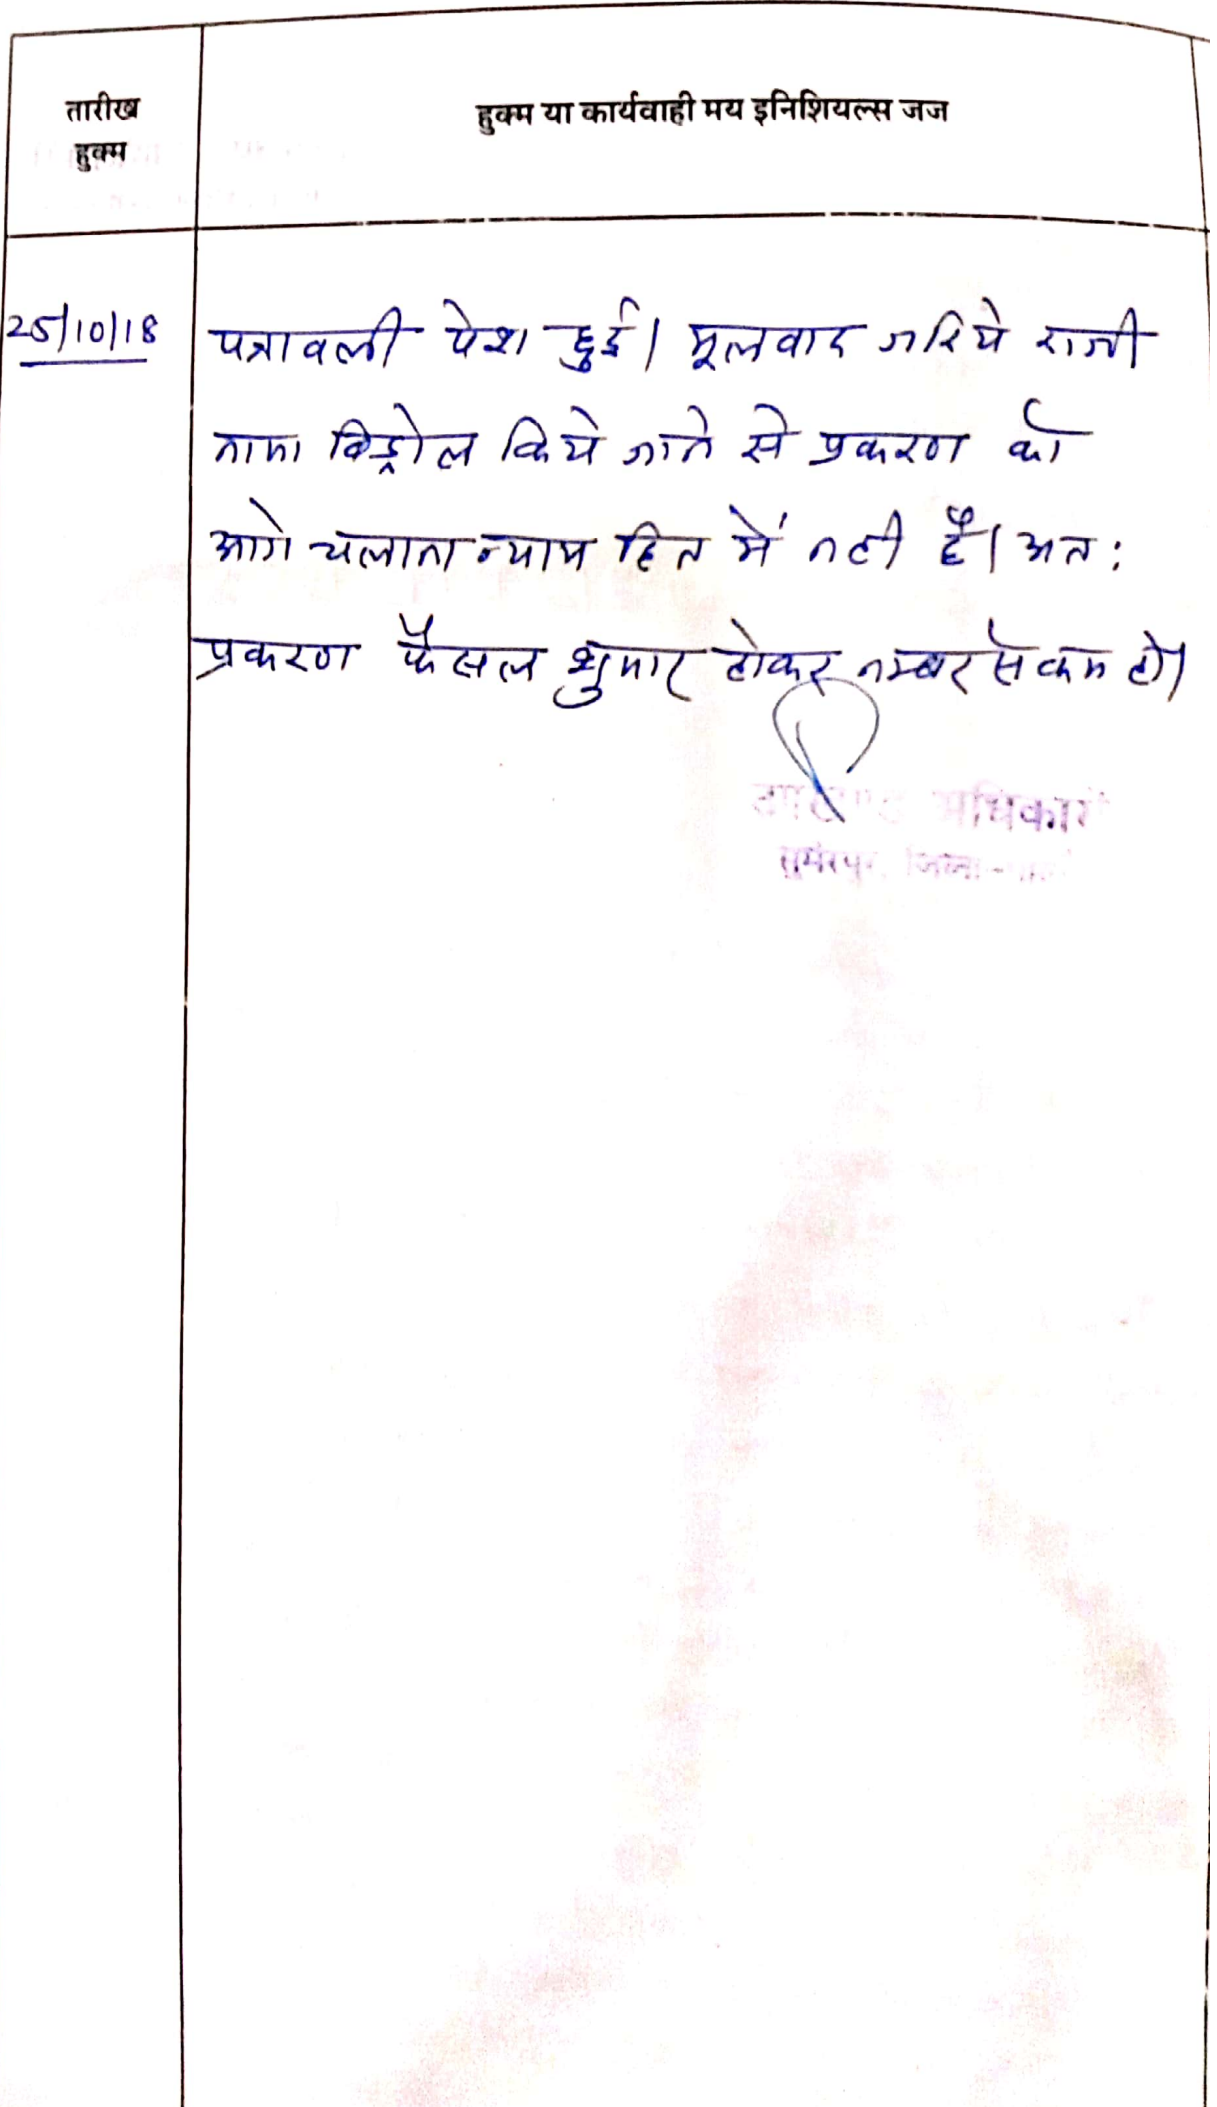 तारीख
हुक्म
हुक्म या कार्यवाही मय इनिशियल्स जज
25/10/18
पत्रावली पेश हुई। मूलवाद जरिये राजी
नामा विड्रोल किये जाने से प्रकरण को
आगे चलाना न्याय हित में नही है। अत:
प्रकरण फैसल शुमार होकर नम्बर से कम हो।
अधिकारी
सुमेरपुर, जिला-